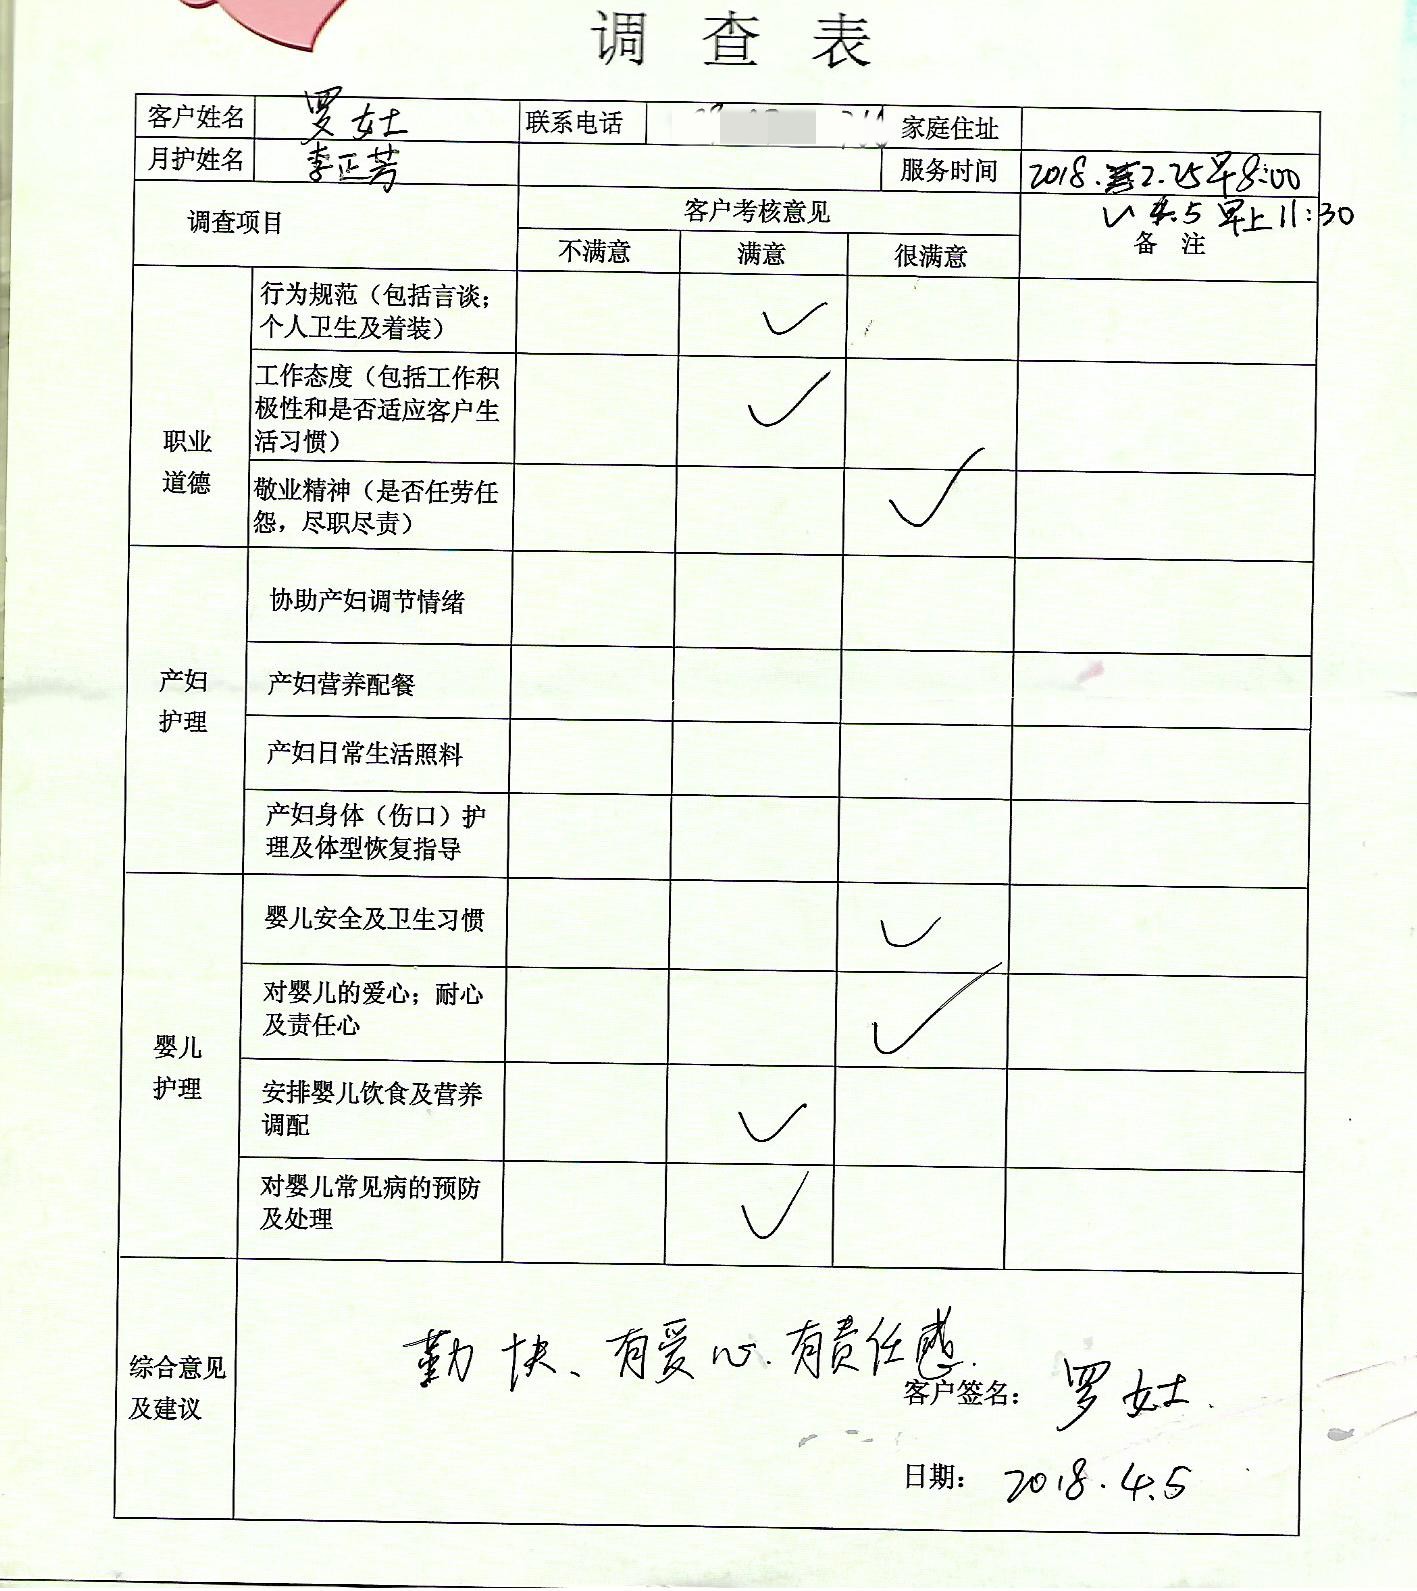 调查表
客户姓名 罗女士 联系电话 家庭住址
月护姓名 李正芳 服务时间 2018.2.25早8:00
4.5早上11:30
调查项目 客户考核意见 备注
不满意 满意 很满意
职业
道德
行为规范（包括言谈；
个人卫生及着装） ✓
工作态度（包括工作积
极性和是否适应客户生
活习惯） ✓
敬业精神（是否任劳任
怨，尽职尽责） ✓
产妇
护理
协助产妇调节情绪
产妇营养配餐
产妇日常生活照料
产妇身体（伤口）护
理及体型恢复指导
婴儿
护理
婴儿安全及卫生习惯 ✓
对婴儿的爱心；耐心
及责任心 ✓
安排婴儿饮食及营养
调配 ✓
对婴儿常见病的预防
及处理 ✓
综合意见
及建议
勤快、有爱心.有责任感.
客户签名： 罗女士.
日期： 2018.4.5